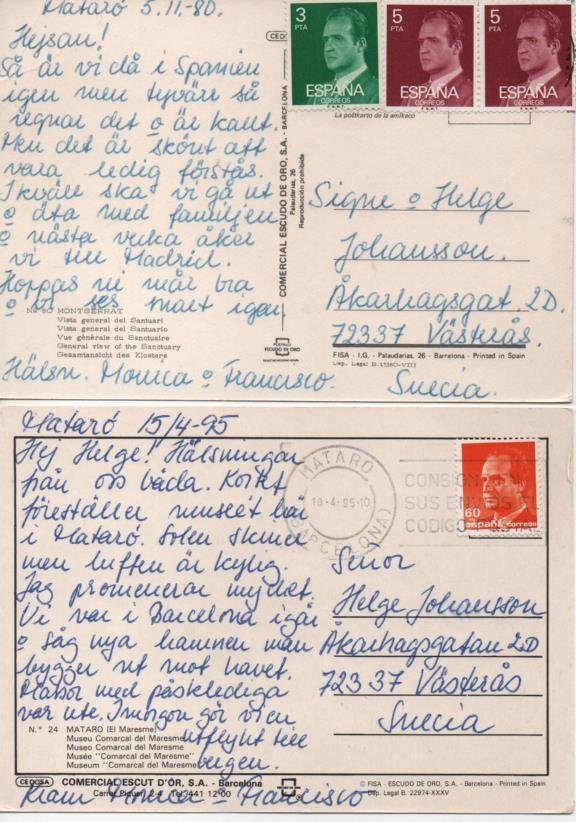 Mataró 5.11-80.
Hejsan!
Så är vi då i Spanien
igen men tyvärr så
regnar det o är kallt.
Men det är skönt att
vara ledig förstås.
Ikväll ska vi gå ut
o äta med familjen
o nästa vecka åker
vi till Madrid.
Hoppas ni mår bra
o vi ses snart igen
Hälsn. Monica o Francisco.
No 60 MONTSERRAT
Vista general del Santuari
Vista general del Santuario
Vue générale du Sanctuaire
General view of the Sanctuary
Gesamtansicht des Klosters
COMERCIAL ESCUDO DE ORO, S.A. - BARCELONA
Palaudarias, 26
Reproducción prohibida
3
PTA
ESPAÑA
CORREOS
5
PTA
ESPAÑA
CORREOS
5
PTA
ESPAÑA
CORREOS
La postkarto de la amikeco
Signe o Helge
Johansson.
Åkarhagsgat. 2D.
72337 Västerås.
Suecia.
POSTALES
ESCUDO DE ORO
FISA - I.G. - Palaudarias, 26 - Barcelona - Printed in Spain
Dep. Legal B. 13360-VIII
Mataró 15/4-95
Hej Helge! Hälsningar
från oss båda. Kortet
föreställer museét här
i Mataró. Solen skiner
men luften är kylig.
Jag promenerar mycket.
Vi var i Barcelona igår
o såg nya hamnen man
bygger ut mot havet.
Massor med påsklediga
var ute. Imorgon gör vi en
utflykt till
bergen.
Kram Monica o Francisco
N.° 24 MATARO (El Maresme)
Museu Comarcal del Maresme
Museo Comarcal del Maresme
Musée "Comarcal del Maresme"
Museum "Comarcal del Maresme"
CEDOSA
COMERCIAL ESCUT D'OR, S.A. - Barcelona
Carrer Piquer, 2-4 Tel. 441 12 00
MATARO
18-4-95-10
(BARCELONA)
CONSIGNE
SUS
CODIGO POSTAL
60
España correos
Senor
Helge Johansson
Åkarhagsgatan 2D
72337 Västerås
Suecia
© FISA - ESCUDO DE ORO, S.A. - Barcelona - Printed in Spain
Dep. Legal B. 22974-XXXV